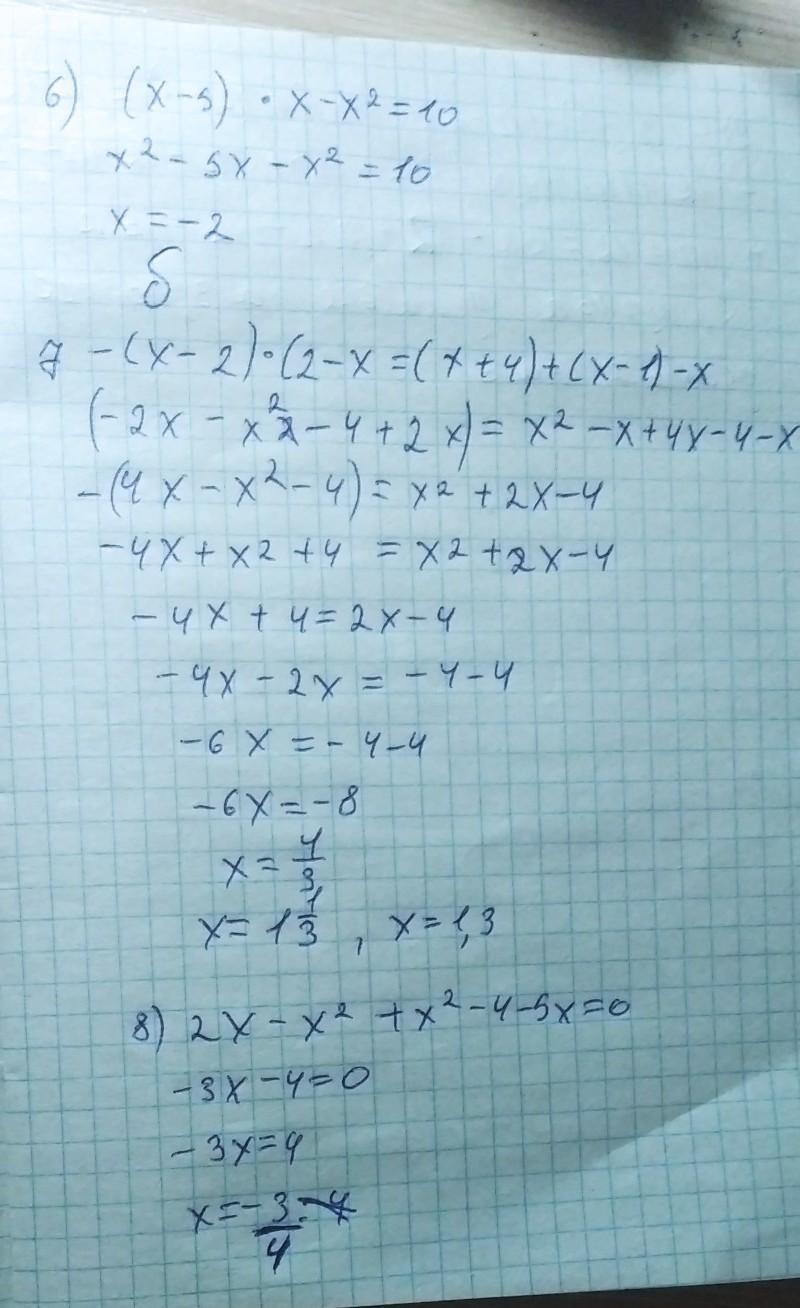 6) (x-5) · x-x²=10
x²-5x-x²=10
x=-2
б
7 -(x-2)·(2-x=(x+4)+(x-1)-x
(-2x-x²-4+2x)=x²-x+4x-4-x
-(4x-x²-4)=x²+2x-4
-4x+x²+4=x²+2x-4
-4x+4=2x-4
-4x-2x=-4-4
-6x=-4-4
-6x=-8
x=4/3
x=1 1/3, x=1,3
8) 2x-x²+x²-4-5x=0
-3x-4=0
-3x=4
x=-3/4